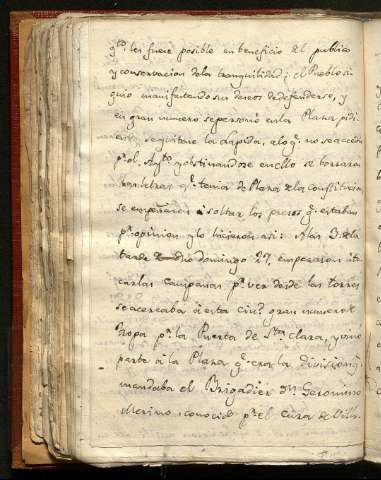 qto. les fuere posible en beneficio del publico
y conservacion dela tranquilidad; el Pueblo si
guio manifestando sus deseos de defenderse, y
en gran numero se personó en la Plaza pidi
endo se quitare la Lapida, alo q. no se accedió
pr. el Aytto. y obstinandose en ello se borraron
las letras qe. tenia de Plaza de la Constitucion
se empeñaron á soltar los presos qe. estaban
pr. opinion y lo hicieron asi: A las 3 de la
tarde domingo 27, empezaron á to
car las campanas pr. ver desde las torres
se acercaba á esta ciud. gran numero de
tropa pr. la Puerta de Sta. clara, y vino
parte á la Plaza qe. era la division q.
mandaba el Brigadier Dn. Geronimo
Merino, conocido pr. el cura de Vill.